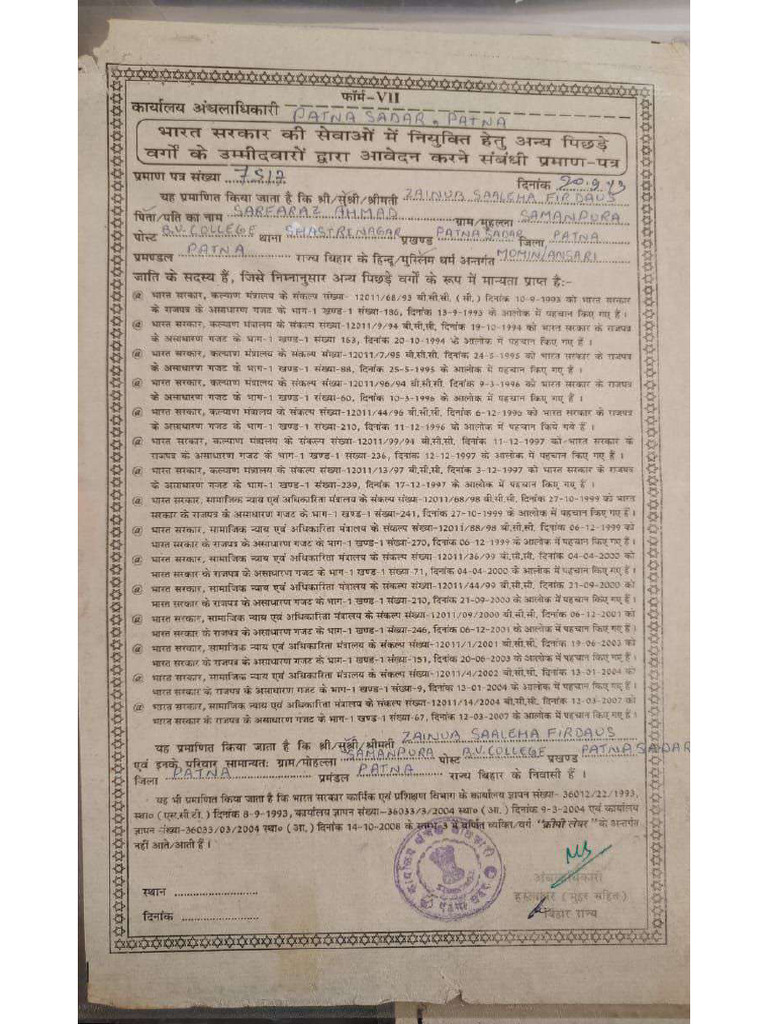 फॉर्म-VII
कार्यालय अंचलाधिकारी PATNA SADAR, PATNA
भारत सरकार की सेवाओं में नियुक्ति हेतु अन्य पिछड़े
वर्गों के उम्मीदवारों द्वारा आवेदन करने संबंधी प्रमाण-पत्र
प्रमाण पत्र संख्या 7517 दिनांक 20.9.13
यह प्रमाणित किया जाता है कि श्री/सुश्री/श्रीमती ZAINUB SAALEHA FIRDAUS
पिता/पति का नाम SARFARAZ AHMAD ग्राम/मुहल्ला SAMANPURA
पोस्ट B.V. COLLEGE थाना SHASTRINAGAR प्रखण्ड PATNA SADAR जिला PATNA
प्रमण्डल PATNA राज्य बिहार के हिन्दू/मुस्लिम धर्म अन्तर्गत MOMIN/ANSARI
जाति के सदस्य हैं, जिसे निम्नानुसार अन्य पिछड़े वर्गों के रूप में मान्यता प्राप्त है:-
@ भारत सरकार, कल्याण मंत्रालय के संकल्प संख्या- 12011/68/93 बी.सी.सी. (सी.) दिनांक 10-9-1993 को भारत सरकार
के राजपत्र के असाधारण गजट के भाग-1 खण्ड-1 संख्या-186, दिनांक 13-9-1993 के आलोक में पहचान किए गए हैं।
@ भारत सरकार, कल्याण मंत्रालय के संकल्प संख्या-12011/9/94 बी.सी.सी, दिनांक 19-10-1994 को भारत सरकार के राजपत्र
के असाधारण गजट के भाग-1 खण्ड-1 संख्या 163, दिनांक 20-10-1994 के आलोक में पहचान किए गए हैं।
@ भारत सरकार, कल्याण मंत्रालय के संकल्प संख्या-12011/7/95 बी.सी.सी. दिनांक 24-5-1995 को भारत सरकार के राजपत्र
के असाधारण गजट के भाग-1 खण्ड-1 संख्या-88, दिनांक 25-5-1995 के आलोक में पहचान किए गए हैं।
@ भारत सरकार, कल्याण मंत्रालय के संकल्प संख्या-12011/96/94 बी.सी.सी, दिनांक 9-3-1996 को भारत सरकार के राजपत्र
के असाधारण गजट के भाग-1 खण्ड-1 संख्या-60, दिनांक 10-3-1996 के आलोक में पहचान किए गए हैं।
@ भारत सरकार, कल्याण मंत्रालय के संकल्प संख्या-12011/44/96 बी.सी.सी, दिनांक 6-12-1996 को भारत सरकार के राजपत्र
के असाधारण गजट के भाग-1 खण्ड-1 संख्या-210, दिनांक 11-12-1996 के आलोक में पहचान किये गये हैं।
@ भारत सरकार, कल्याण मंत्रालय के संकल्प संख्या-12011/99/94 बी.सी.सी. दिनांक 11-12-1997 को भारत सरकार के
राजपत्र के असाधारण गजट के भाग-1 खण्ड-1 संख्या-236, दिनांक 12-12-1997 के आलोक में पहचान किए गए हैं।
@ भारत सरकार, कल्याण मंत्रालय के संकल्प संख्या-12011/13/97 बी.सी.सी, दिनांक 3-12-1997 को भारत सरकार के राजपत्र
के असाधारण गजट के भाग-1 खण्ड-1 संख्या-239, दिनांक 17-12-1997 के आलोक में पहचान किए गए हैं।
@ भारत सरकार, सामाजिक न्याय एवं अधिकारिता मंत्रालय के संकल्प संख्या-12011/68/98 बी.सी.सी, दिनांक 27-10-1999 को भारत
सरकार के राजपत्र के असाधारण गजट के भाग-1 खण्ड-1 संख्या-241, दिनांक 27-10-1999 के आलोक में पहचान किए गए हैं।
@ भारत सरकार, सामाजिक न्याय एवं अधिकारिता मंत्रालय के संकल्प संख्या-12011/88/98 बी.सी.सी, दिनांक 06-12-1999 को
भारत सरकार के राजपत्र के असाधारण गजट के भाग-1 खण्ड-1 संख्या-270, दिनांक 06-12-1999 के आलोक में पहचान किए गए हैं।
@ भारत सरकार, सामाजिक न्याय एवं अधिकारिता मंत्रालय के संकल्प संख्या-12011/36/99 बी.सी.सी, दिनांक 04-04-2000 को
भारत सरकार के राजपत्र के असाधारण गजट के भाग-1 खण्ड-1 संख्या-71, दिनांक 04-04-2000 के आलोक में पहचान किए गए हैं।
@ भारत सरकार, सामाजिक न्याय एवं अधिकारिता मंत्रालय के संकल्प संख्या-12011/44/99 बी.सी.सी, दिनांक 21-09-2000 को
भारत सरकार के राजपत्र के असाधारण गजट के भाग-1 खण्ड-1 संख्या-210, दिनांक 21-09-2000 के आलोक में पहचान किए गए हैं।
@ भारत सरकार, सामाजिक न्याय एवं अधिकारिता मंत्रालय के संकल्प संख्या-12011/09/2000 बी.सी.सी. दिनांक 06-12-2001 को
भारत सरकार के राजपत्र के असाधारण गजट के भाग-1 खण्ड-1 संख्या-246, दिनांक 06-12-2001 के आलोक में पहचान किए गए हैं।
@ भारत सरकार, सामाजिक न्याय एवं अधिकारिता मंत्रालय के संकल्प संख्या-12011/1/2001 बी.सी.सी, दिनांक 19-06-2003 को
भारत सरकार के राजपत्र के असाधारण गजट के भाग-1 खण्ड-1 संख्या-151, दिनांक 20-06-2003 के आलोक में पहचान किए गए हैं।
@ भारत सरकार, सामाजिक न्याय एवं अधिकारिता मंत्रालय के संकल्प संख्या-12011/4/2002 बी.सी.सी, दिनांक 13-01-2004 को
भारत सरकार के राजपत्र के असाधारण गजट के भाग-1 खण्ड-1 संख्या-9, दिनांक 13-01-2004 के आलोक में पहचान किए गए हैं।
@ भारत सरकार, सामाजिक न्याय एवं अधिकारिता मंत्रालय के संकल्प संख्या-12011/14/2004 बी.सी.सी, दिनांक 12-03-2007 को
भारत सरकार के राजपत्र के असाधारण गजट के भाग-1 खण्ड-1 संख्या-67, दिनांक 12-03-2007 के आलोक में पहचान किए गए हैं।
यह प्रमाणित किया जाता है कि श्री/सुश्री/श्रीमती ZAINUB SAALEHA FIRDAUS
एवं इनके परिवार सामान्यतः ग्राम/मोहल्ला SAMANPURA पोस्ट B.V. COLLEGE प्रखण्ड PATNA SADAR
जिला PATNA प्रमंडल PATNA राज्य बिहार के निवासी हैं ।
यह भी प्रमाणित किया जाता है कि भारत सरकार कार्मिक एवं प्रशिक्षण विभाग के कार्यालय ज्ञापन संख्या-36012/22/1993,
स्था० (एस.सी.टी.) दिनांक 8-9-1993, कार्यालय ज्ञापन संख्या-36033/3/2004 स्था० (आ.) दिनांक 9-3-2004 एवं कार्यालय
ज्ञापन संख्या-36033/03/2004 स्था० (आ.) दिनांक 14-10-2008 के स्तम्भ-3 में वर्णित व्यक्ति/वर्ग "क्रीमी लेयर" के अन्तर्गत
नहीं आते/आती हैं।
अंचलाधिकारी
स्थान हस्ताक्षर (मुहर सहित)
दिनांक बिहार राज्य